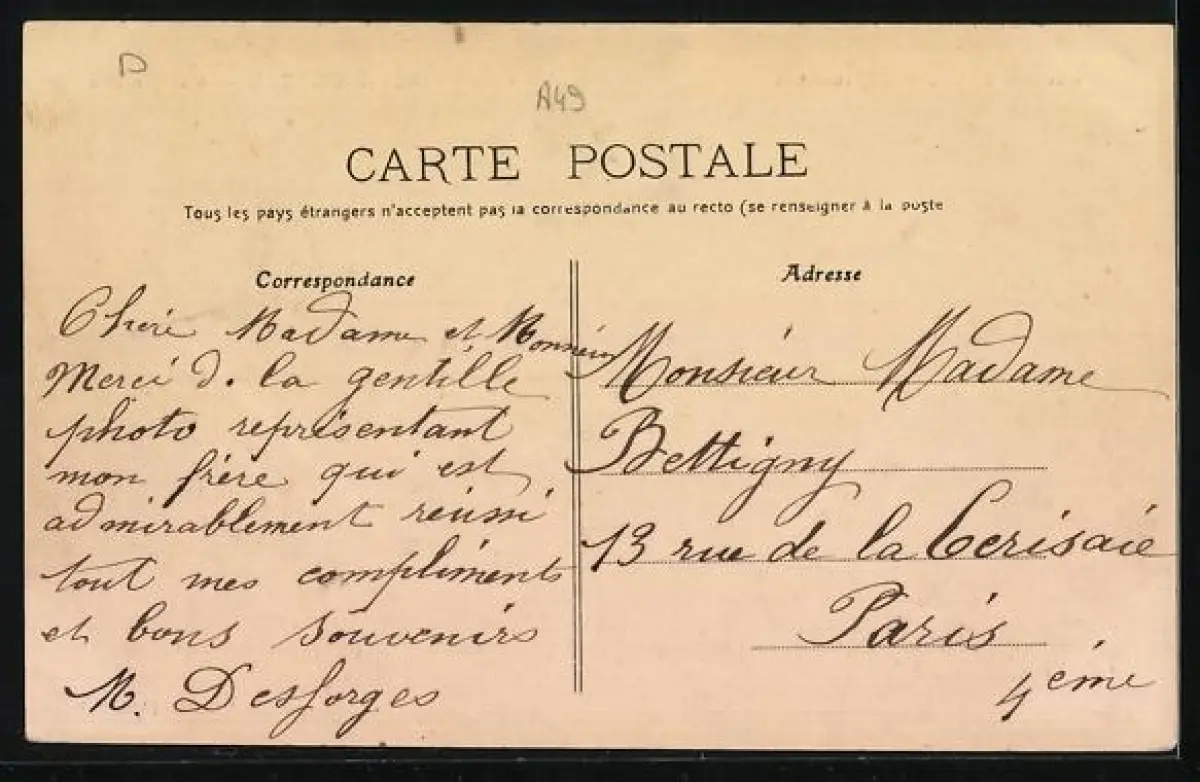 D
A49
CARTE POSTALE
Tous les pays étrangers n'acceptent pas la correspondance au recto (se renseigner à la poste
Correspondance
Adresse
Chère Madame et Monsieur
Merci d. la gentille
photo représentant
mon frère qui est
admirablement réussi
tout mes compliments
et bons souvenirs
M. Desforges
Monsieur Madame
Bettigny
13 rue de la Cerisaie
Paris
4ème